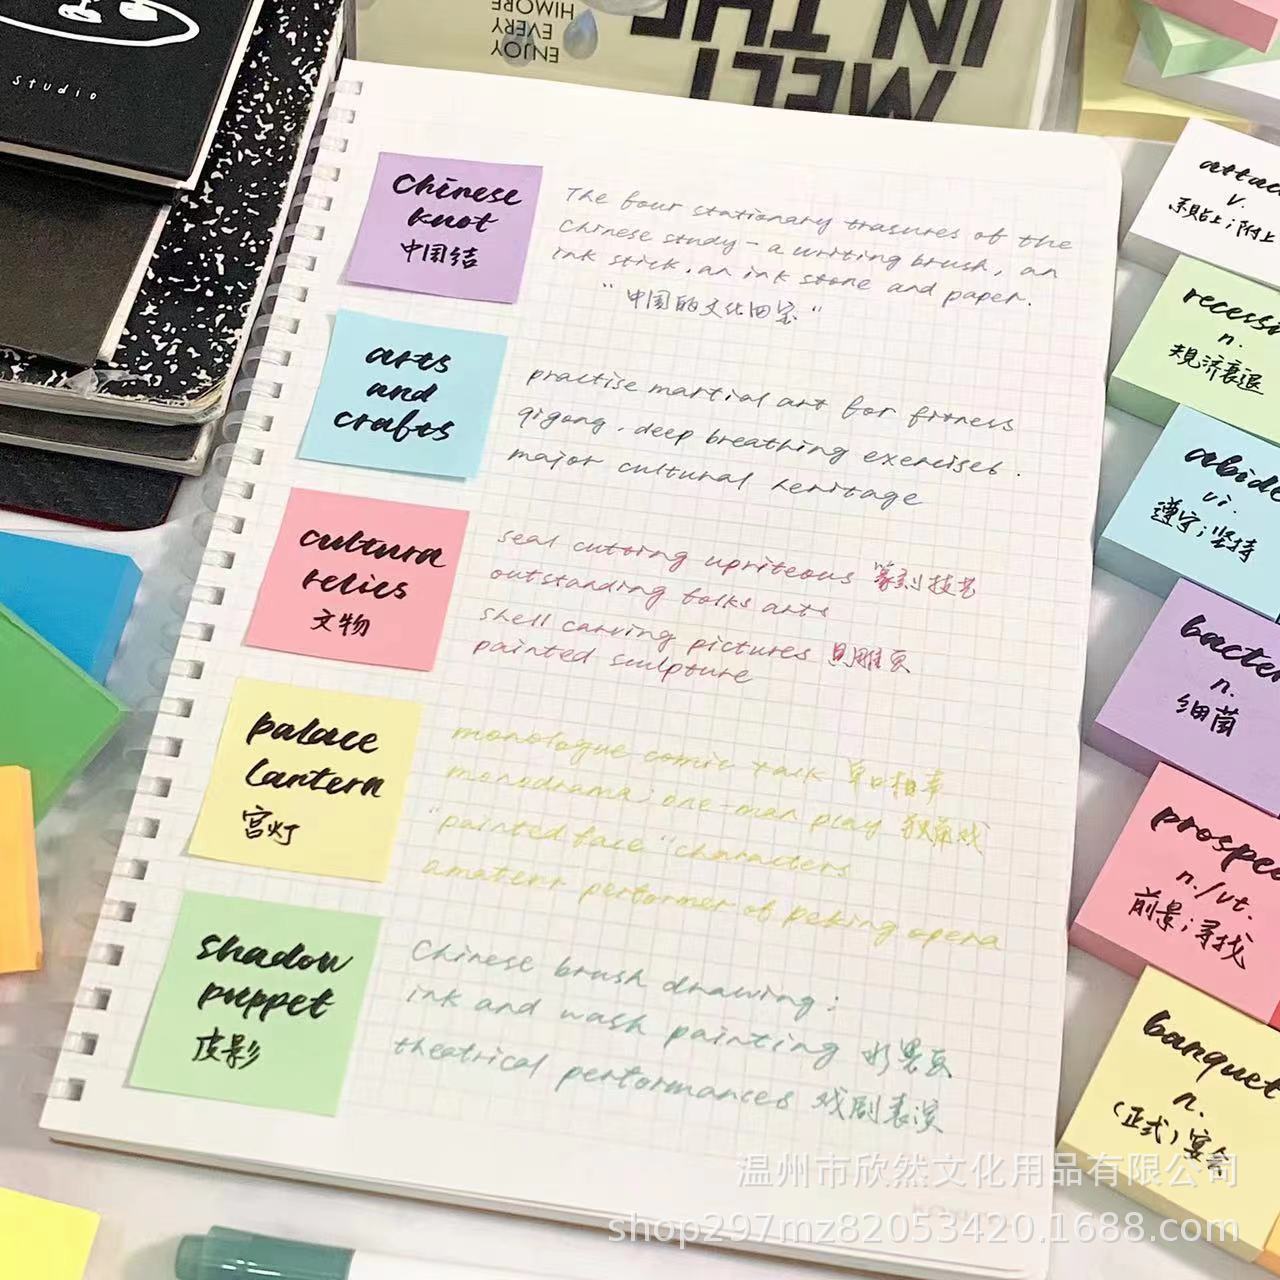 studio
ENJOY
EVERY
HIMORE
MELT
IN THE
Chinese
knot
中国结
The four stationary trasures of the
Chinese study - a writing brush, an
ink stick, an ink stone and paper.
"中国的文化四宝"
arts
and
crafts
practise martial art for fitness
qigong, deep breathing exercises.
major cultural heritage
cultura
relics
文物
seal cutting upriteous 篆刻技艺
outstanding folks arts
shell carving pictures 贝雕页
painted sculpture
palace
lantern
宫灯
monologue comic talk 单口相声
monodrama; one-man play 独角戏
"painted face" characters
amaterr performer of peking opera
shadow
puppet
皮影
Chinese brush drawing:
ink and wash painting 水墨页
theatrical performances 戏剧表演
attac
v.
系贴上;附上
recessi
n.
规济衰退
abide
vi.
遵守;坚持
bacter
n.
细菌
prospec
n./vt.
前景;寻找
banquet
n.
(正式)宴会
温州市欣然文化用品有限公司
shop297mz82053420.1688.com